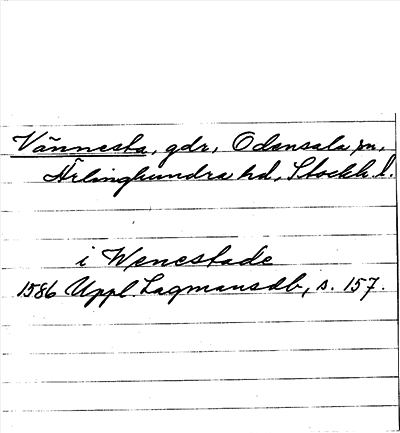 Vännesta, gdr, Odensala sn,
Ärlinghundra hd, Stockh. l.
i Wenestade
1586 Uppl. Lagmansdb, s. 157.